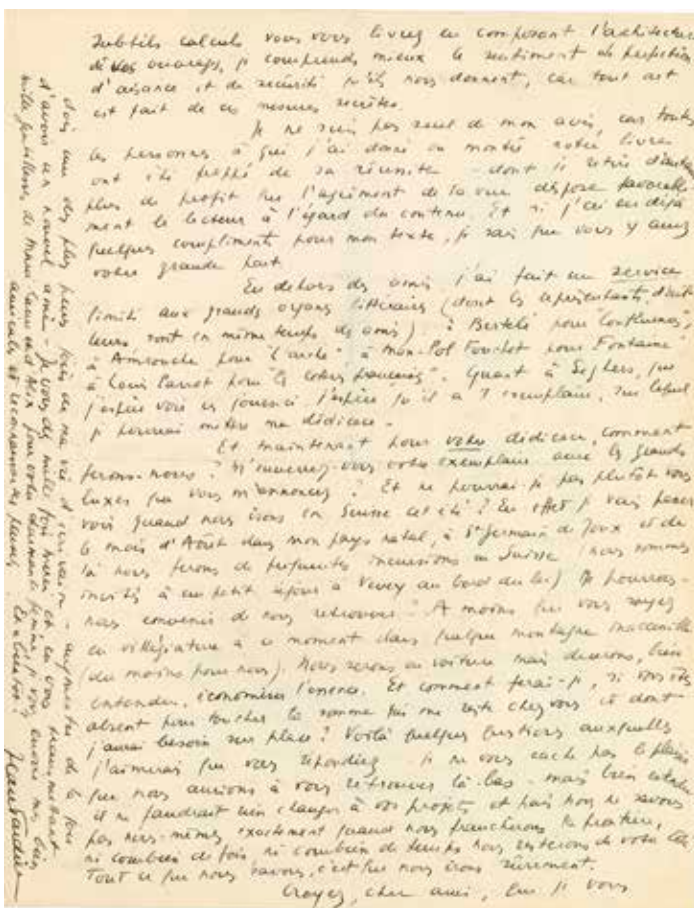 subtils calculs vous vous livrez en composant l'architecture
de vos ouvrages, je comprends mieux le sentiment de perfection
d'aisance et de sécurité qu'ils nous donnent, car tout art
est fait de ces mesures secrètes.
Je ne suis pas seul de mon avis, car toutes
les personnes à qui j'ai donné ou montré notre livre
ont été frappé de sa réussite - dont je retire d'autant
plus de profit que l'agrément de la vue dispose favorable
ment le lecteur à l'égard du contenu. Et si j'ai eu déjà
quelques compliments pour mon texte, je sais que vous y avez
votre grande part.
En dehors des amis j'ai fait un service
limité aux grands organes littéraires (dont les représentants, d'ail
leurs sont en même temps des amis) : à Bertelé pour "Confluences",
à Amrouche pour "l'arche" à Max-Pol Fouchet pour "Fontaine"
à Louis Parrot pour "les lettres françaises". Quant à Seghers, que
j'espère voir ces jours-ci j'espère qu'il a 1 exemplaire, sur lequel
je pourrai mettre ma dédicace.
Et maintenant pour votre dédicace, comment
ferons-nous ? M'enverrez-vous votre exemplaire avec les grands
luxes que vous m'annoncez ? Et ne pourrai-je pas plutôt vous
voir quand nous irons en Suisse cet été ? En effet je vais passer
le mois d'Août dans mon pays natal, à St Germain de Joux et de
là nous ferons de fréquentes incursions en Suisse (nous sommes
invités à un petit séjour à Vevey au bord du lac) Ne pourrions-
nous convenir de nous retrouver ? A moins que vous soyez
en villégiature à ce moment dans quelque montagne inaccessible
(du moins pour nous). Nous serons en voiture mais devrons, bien
entendu, économiser l'essence. Et comment ferai-je, si vous êtes
absent pour toucher la somme qui me reste chez vous et dont
j'aurai besoin sur place ? Voilà quelques questions auxquelles
j'aimerais que vous répondiez. Je ne vous cache pas le plaisir
que nous aurions à vous retrouver là-bas - mais bien entendu
il ne faudrait rien changer à vos projets et puis nous ne savons
pas nous-mêmes exactement quand nous franchirons la frontière,
ni combien de fois, ni combien de temps nous resterons de votre côté
Tout ce que nous savons, c'est que nous irons sûrement.
Croyez, cher ami, que je vous
dois une des plus pures joies de ma vie d'écrivain - augmentée de la joie
d'avoir un nouvel ami - Je vous dis mille fois merci et, en vous transmettant
mille gentillesses de Marie Laure et d'Alix pour votre charmante femme, je vous envoie mes bien
amicales et reconnaissantes pensées.
Jean Tardieu